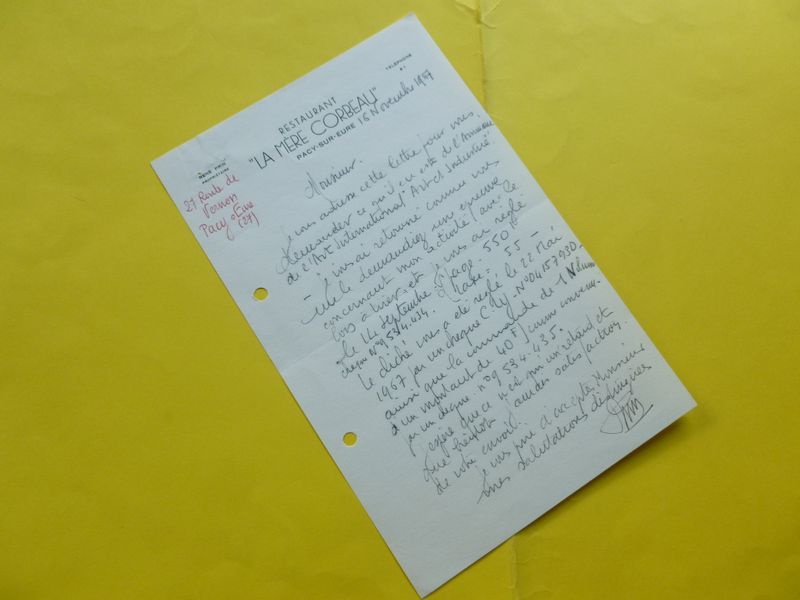 RESTAURANT
"LA MÈRE CORBEAU"
PACY-SUR-EURE
TELEPHONE
RENÉ
PROPRIÉTAIRE
27 Route de
Vernon
Pacy s/Eure
(27)
16 Novembre 1967
Monsieur.
Je vous adresse cette lettre pour vous
demander ce qu'il en est de l'Annuaire
de l'Art International "Art et Industrie".
- Je vous ai retourné comme vous
me le demandiez une épreuve
concernant mon activité (avec le
bon à tirer, et je vous ai réglé
le 14 septembre page 550
chèque N°9.534.434. taxe: 55 -
le cliché vous a été réglé le 22 Mai
1967 par un chèque N°04157930-
ainsi que la commande de 1
d'un montant de 40 F)
par un chèque n°9.534.435.
J'espère que ce n'est qu'un retard et
que bientôt j'aurais satisfaction
de votre envoi.
Je vous prie d'accepter Monsieur
mes salutations distinguées